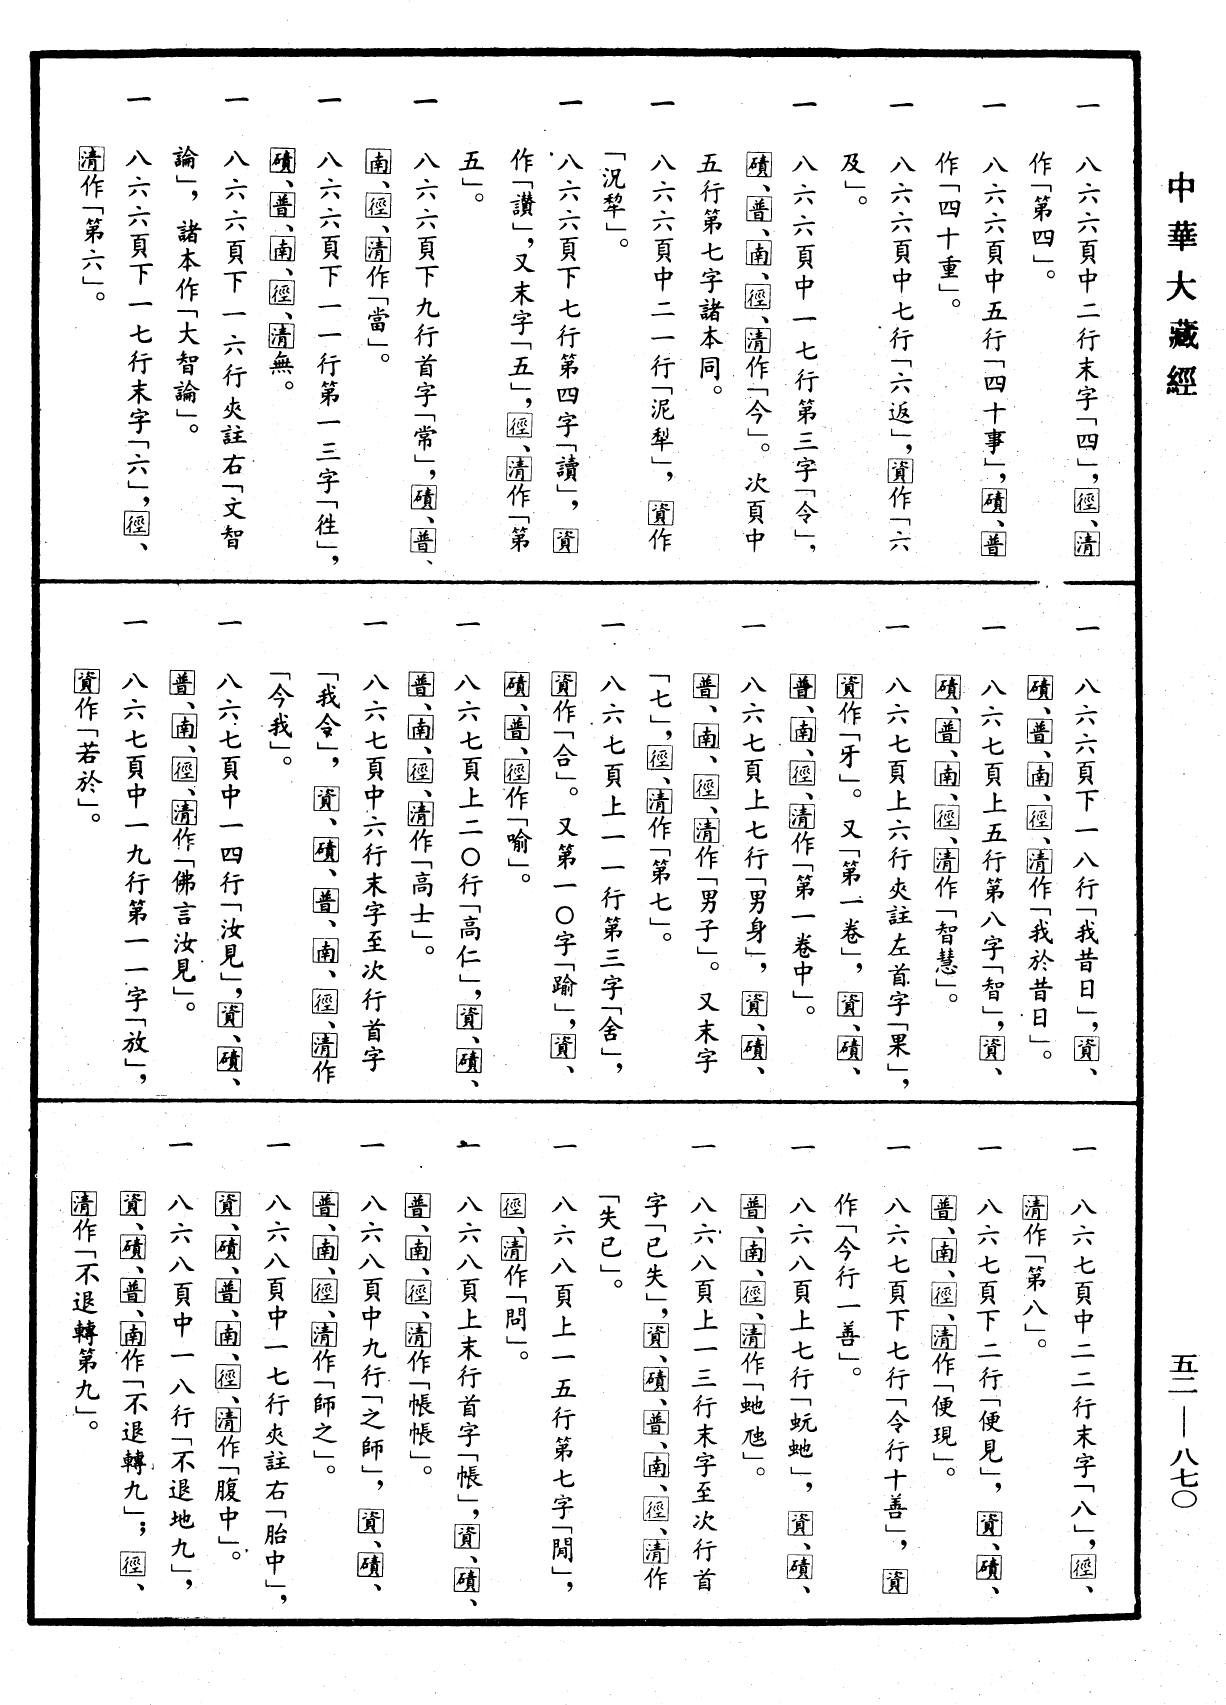 中華大藏經
一　八六六頁中二行末字「四」，徑、清
作「第四」。
一　八六六頁中五行「四十事」，磧、普
作「四十重」。
一　八六六頁中七行「六返」，資作「六
及」。
一　八六六頁中一七行第三字「令」，
磧、普、南、徑、清作「今」。次頁中
五行第七字諸本同。
一　八六六頁中二一行「泥犁」，資作
「況犂」。
一　八六六頁下七行第四字「讀」，資
作「讚」，又末字「五」，徑、清作「第
五」。
一　八六六頁下九行首字「常」，磧、普、
南、徑、清作「當」。
一　八六六頁下一一行第一三字「徃」，
磧、普、南、徑、清無。
一　八六六頁下一六行夾註右「文智
論」，諸本作「大智論」。
一　八六六頁下一七行末字「六」，徑、
清作「第六」。
一　八六六頁下一八行「我昔日」，資、
磧、普、南、徑、清作「我於昔日」。
一　八六七頁上五行第八字「智」，資、
磧、普、南、徑、清作「智慧」。
一　八六七頁上六行夾註左首字「果」，
資作「牙」。又「第一卷」，資、磧、
普、南、徑、清作「第一卷中」。
一　八六七頁上七行「男身」，資、磧、
普、南、徑、清作「男子」。又末字
「七」，徑、清作「第七」。
一　八六七頁上一一行第三字「舍」，
資作「合」。又第一〇字「踰」，資、
磧、普、徑作「喻」。
一　八六七頁上二〇行「高仁」，資、磧、
普、南、徑、清作「高士」。
一　八六七頁中六行末字至次行首字
「我令」，資、磧、普、南、徑、清作
「今我」。
一　八六七頁中一四行「汝見」，資、磧、
普、南、徑、清作「佛言汝見」。
一　八六七頁中一九行第一一字「放」，
資作「若於」。
一　八六七頁中二二行末字「八」，徑、
清作「第八」。
一　八六七頁下二行「便見」，資、磧、
普、南、徑、清作「便現」。
一　八六七頁下七行「令行十善」，資
作「今行一善」。
一　八六八頁上七行「蚖虵」，資、磧、
普、南、徑、清作「虵虺」。
一　八六八頁上一三行末字至次行首
字「已失」，資、磧、普、南、徑、清作
「失已」。
一　八六八頁上一五行第七字「閒」，
徑、清作「問」。
一　八六八頁上末行首字「帳」，資、磧、
普、南、徑、清作「帳帳」。
一　八六八頁中九行「之師」，資、磧、
普、南、徑、清作「師之」。
一　八六八頁中一七行夾註右「胎中」，
資、磧、普、南、徑、清作「腹中」。
一　八六八頁中一八行「不退地九」，
資、磧、普、南作「不退轉九」；徑、
清作「不退轉第九」。
五二—八七〇